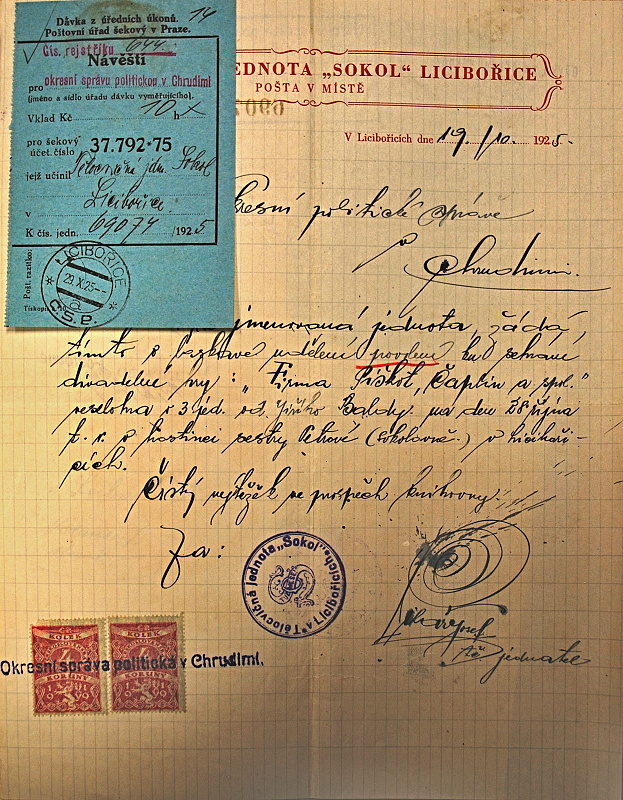 14
Dávka z úředních úkonů.
Poštovní úřad šekový v Praze.
Čís. rejstříku 644
Návěští
pro okresní správu politickou v Chrudimi
(jméno a sídlo úřadu dávku vyměřujícího).
Vklad Kč 10 h x
pro šekový
účet číslo 37.792·75
jejž učinil Tělocvičná jdn. Sokol
v Licibořice
K čís. jedn. 69074/1925
Pošt. razítko:
LICIBOŘICE
29.X.25
a
Č.S.P.
Tiskopis
EDNOTA „SOKOL" LICIBOŘICE
POŠTA V MÍSTĚ
V Licibořicích dne 19./10. 1925.
politické správě
v
Chrudimi.
jmenovaná jednota, žádá
tímto o laskavé udělení povolení ku sehrání
divadelní hry: „Firma Čaplin a spol."
veselohra o 3 jed. od Jiřího Baldy. na den 28 října
t. r. v hostinci sestry Petrové (Sokolovně.) v Liciboři-
cích.
Čistý výtěžek ve prospěch knihovny.
Za:
Tělocvičná jednota „Sokol" v Licibořicích.
jednatel
KOLEK
KORUNY
KOLEK
KORUNY
Okresní správa politická v Chrudimi.